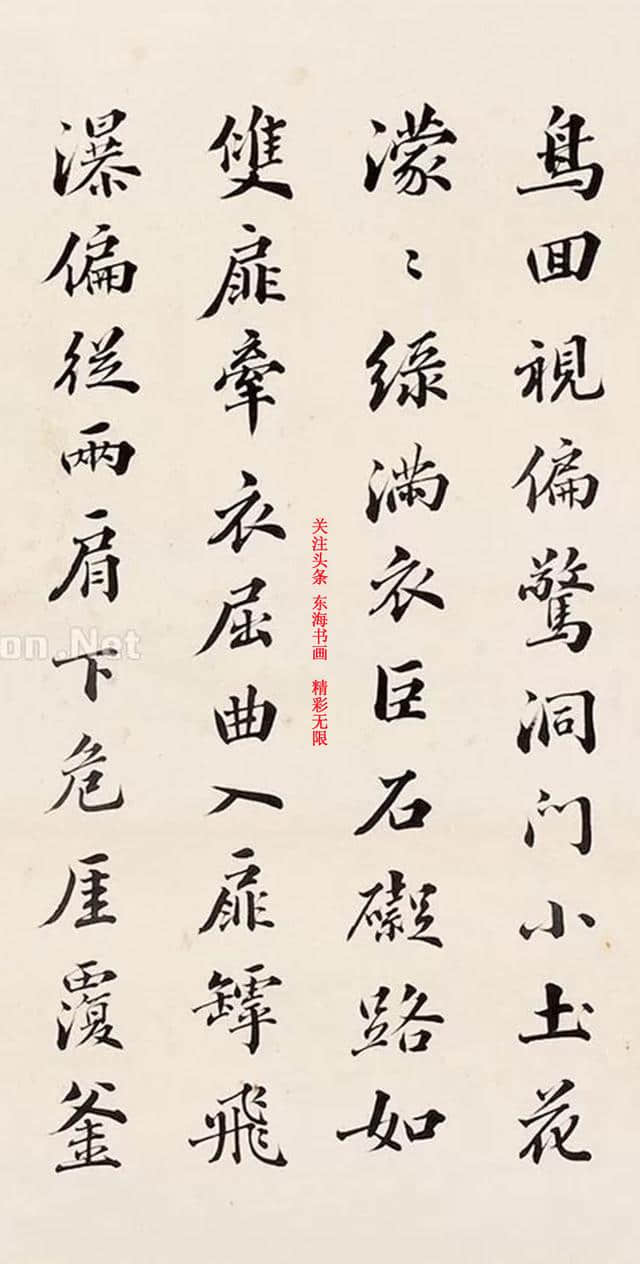 鳥回視偏驚洞門小土花
濛〻緑滿衣巨石礙路如
雙扉牽衣屈曲入扉罅飛
瀑偏從兩肩下危厓覆釜
关注头条 东海书画 精彩无限
on.Net